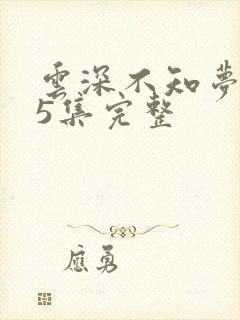 雲深不知夢
5集完整
應勇